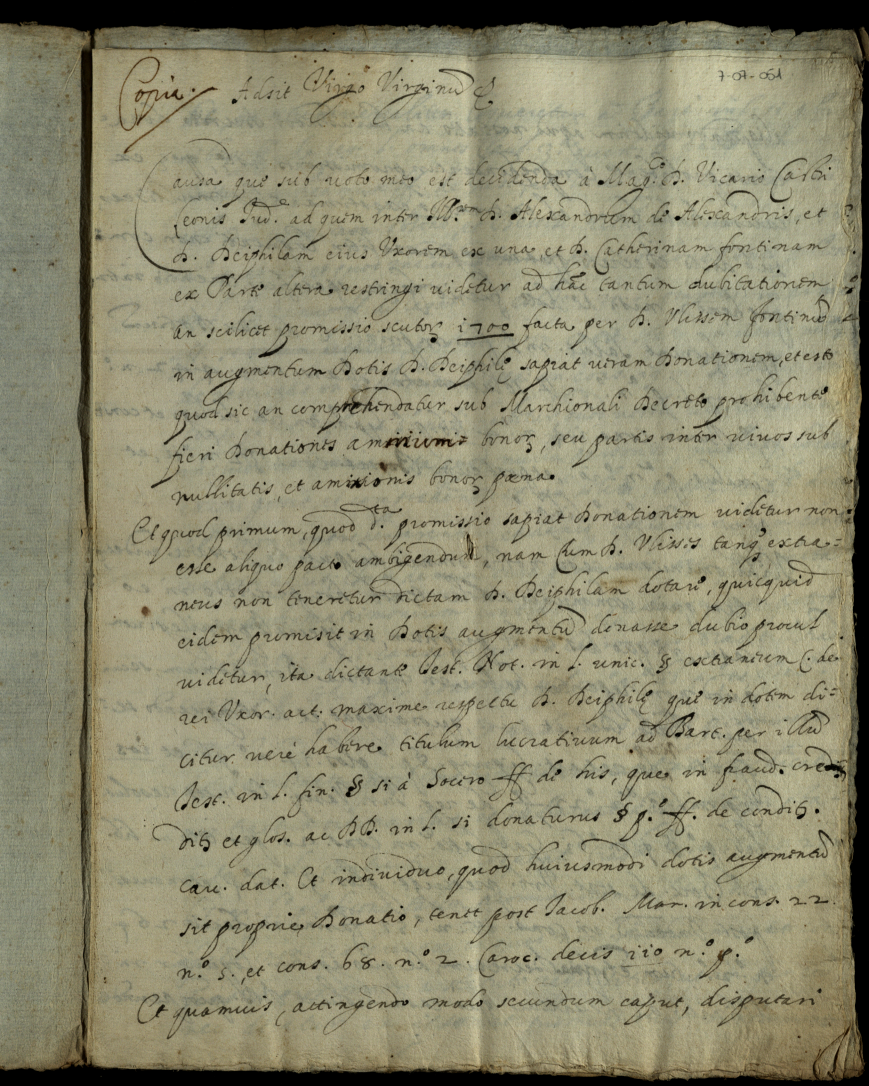 Copia. Adsit Virgo Virginũ &
7-07-061
Causa quę sub voto meo est decidenda à Mag.co D. Vicario Castri
Leonis Jud.e ad quem inter Ill.rem D. Alexandrum de Alexandris, et
D. Deiphilam eius Uxorem ex una, et D. Catherinam fontinam
ex Parte altera restringi videtur ad hãc tantum dubitationem
an scilicet promissio scutoꝝ 1700 facta per D. Ulissem fontinũ
in augmentum Dotis D. Deiphilę sapiat veram Donationem, et esto
quod sic an comprehendatur sub Marchionali Decreto prohibente
fieri Donationes bonoꝝ, seu partis inter vivos sub
nullitatis, et amissionis bonoꝝ pæna.
Et quod primum, quod d.ta promissio sapiat Donationem videtur non
esse aliquo pacto ambigendum, nam cum D. Ulisses tanq̃ extra=
neus non teneretur dictam D. Deiphilam dotare, quicquid
eidem promisit in Dotis augmentũ donasse dubio procul
videtur, ita dictante Test. Not. in l. unic. § extraneum C. de
rei Uxor. act. maxime respectu D. Deiphilę quę in dotem di=
citur verè habere titulum lucrativum ad Bart. per illũ
Test. in l. fin. § si à Socero ff. de his, que in fraud. cred.
ditꝝ et glos. ac DD. in l. si donaturus § p.o ff. de condit.
cau. dat. Et individuo, quod huiusmodi dotis augmentũ
sit proprie Donatio, tenet post Jacob. Man. in cons. 22
n.o 5., et cons. 68. n.o 2. Caroc. decis 110 n.o p.o
Et quamvis, attingendo modo secundum caput, disputari